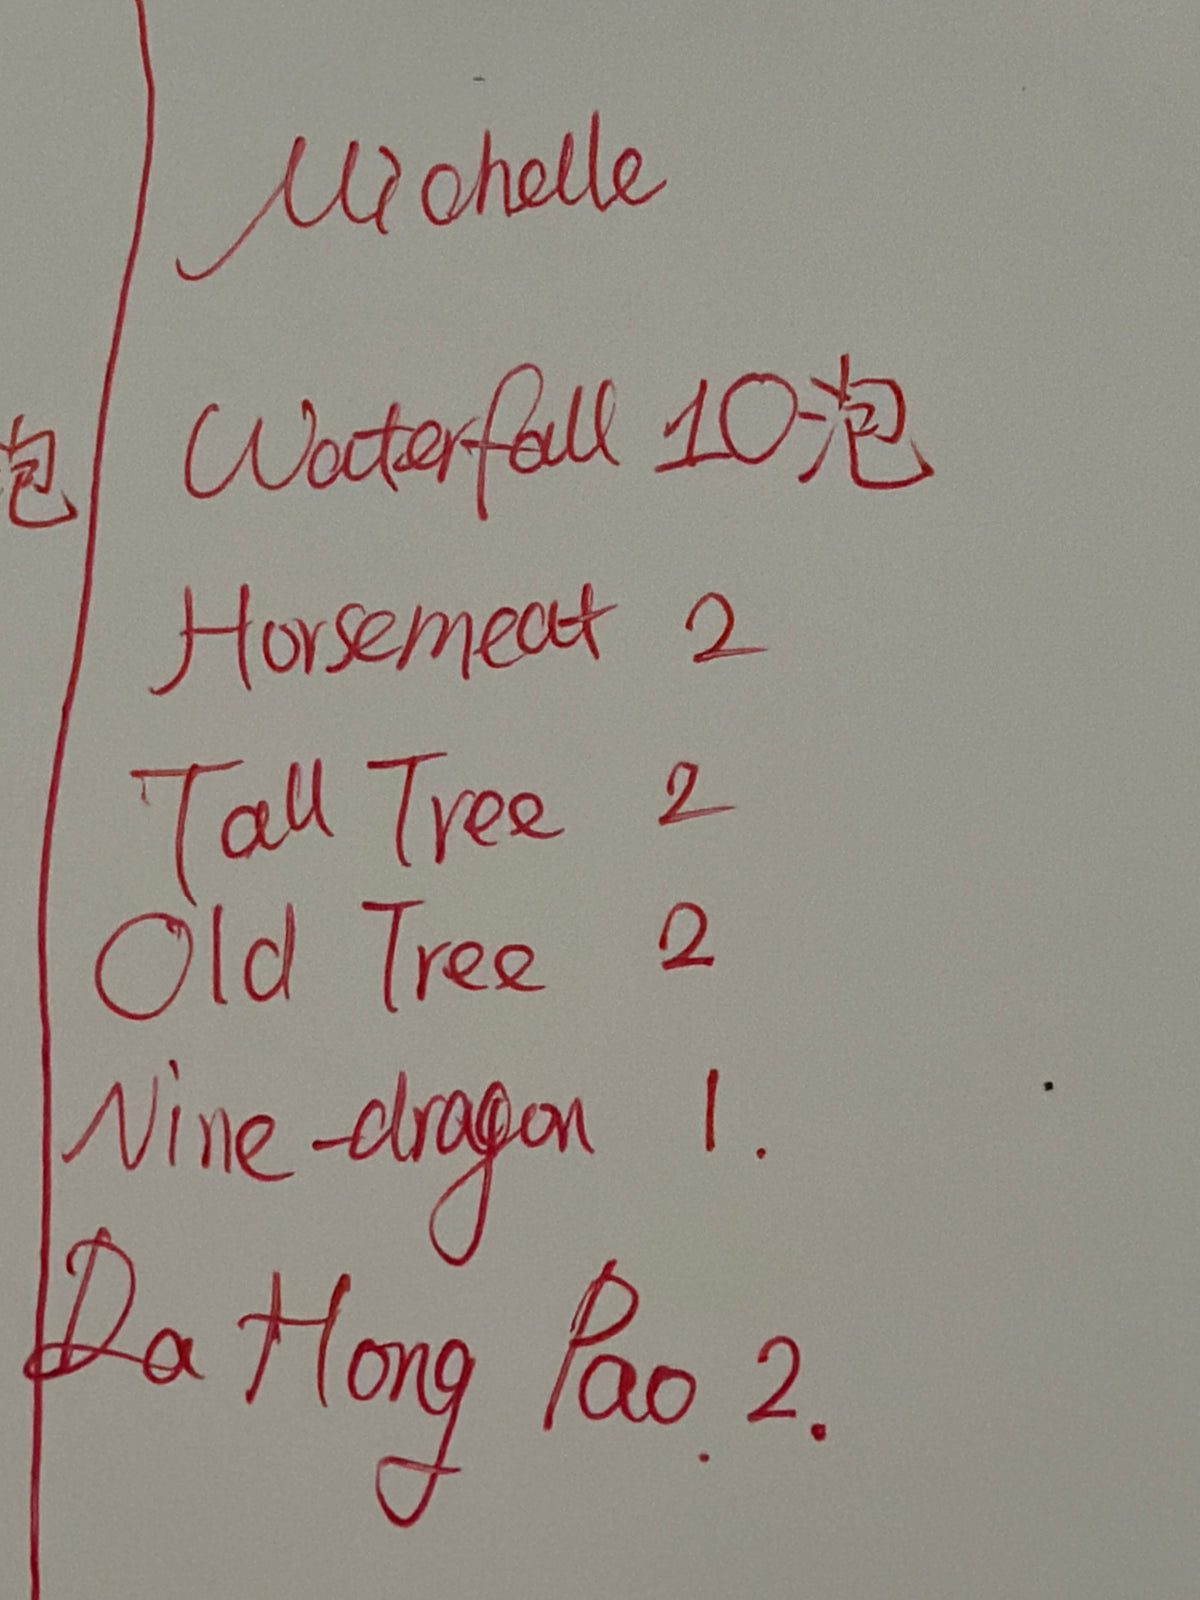 Michelle
泡
Waterfall 10泡
Horsemeat 2
Tall Tree 2
Old Tree 2
Nine-dragon 1.
Da Hong Pao. 2.